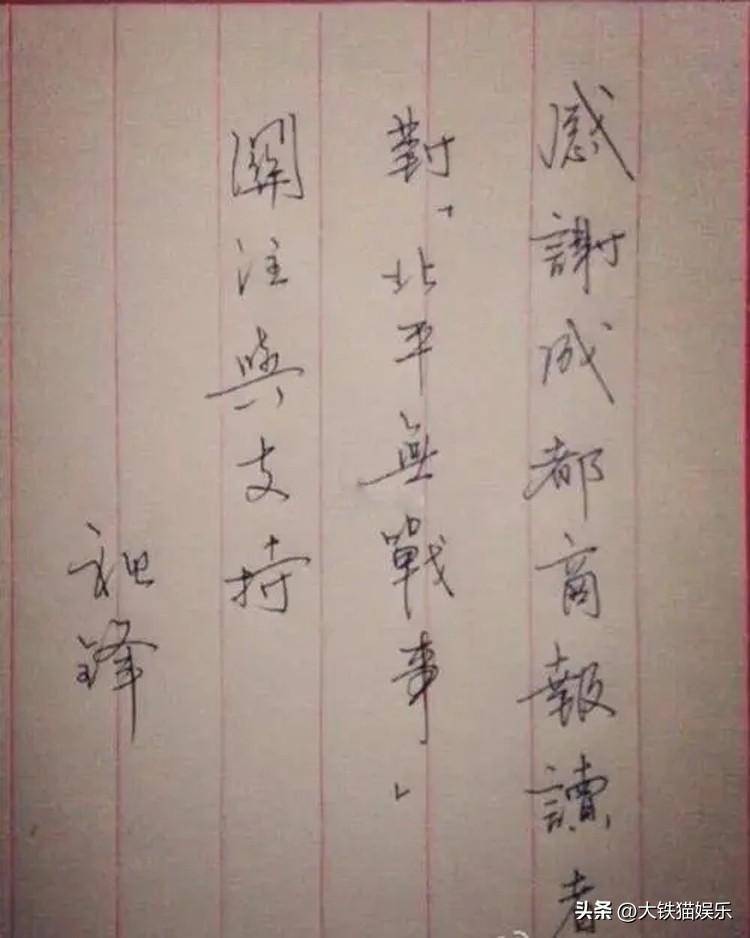 感謝成都商報讀者
對「北平無戰事」
關注與支持
祖鋒
头条 @大铁猫娱乐